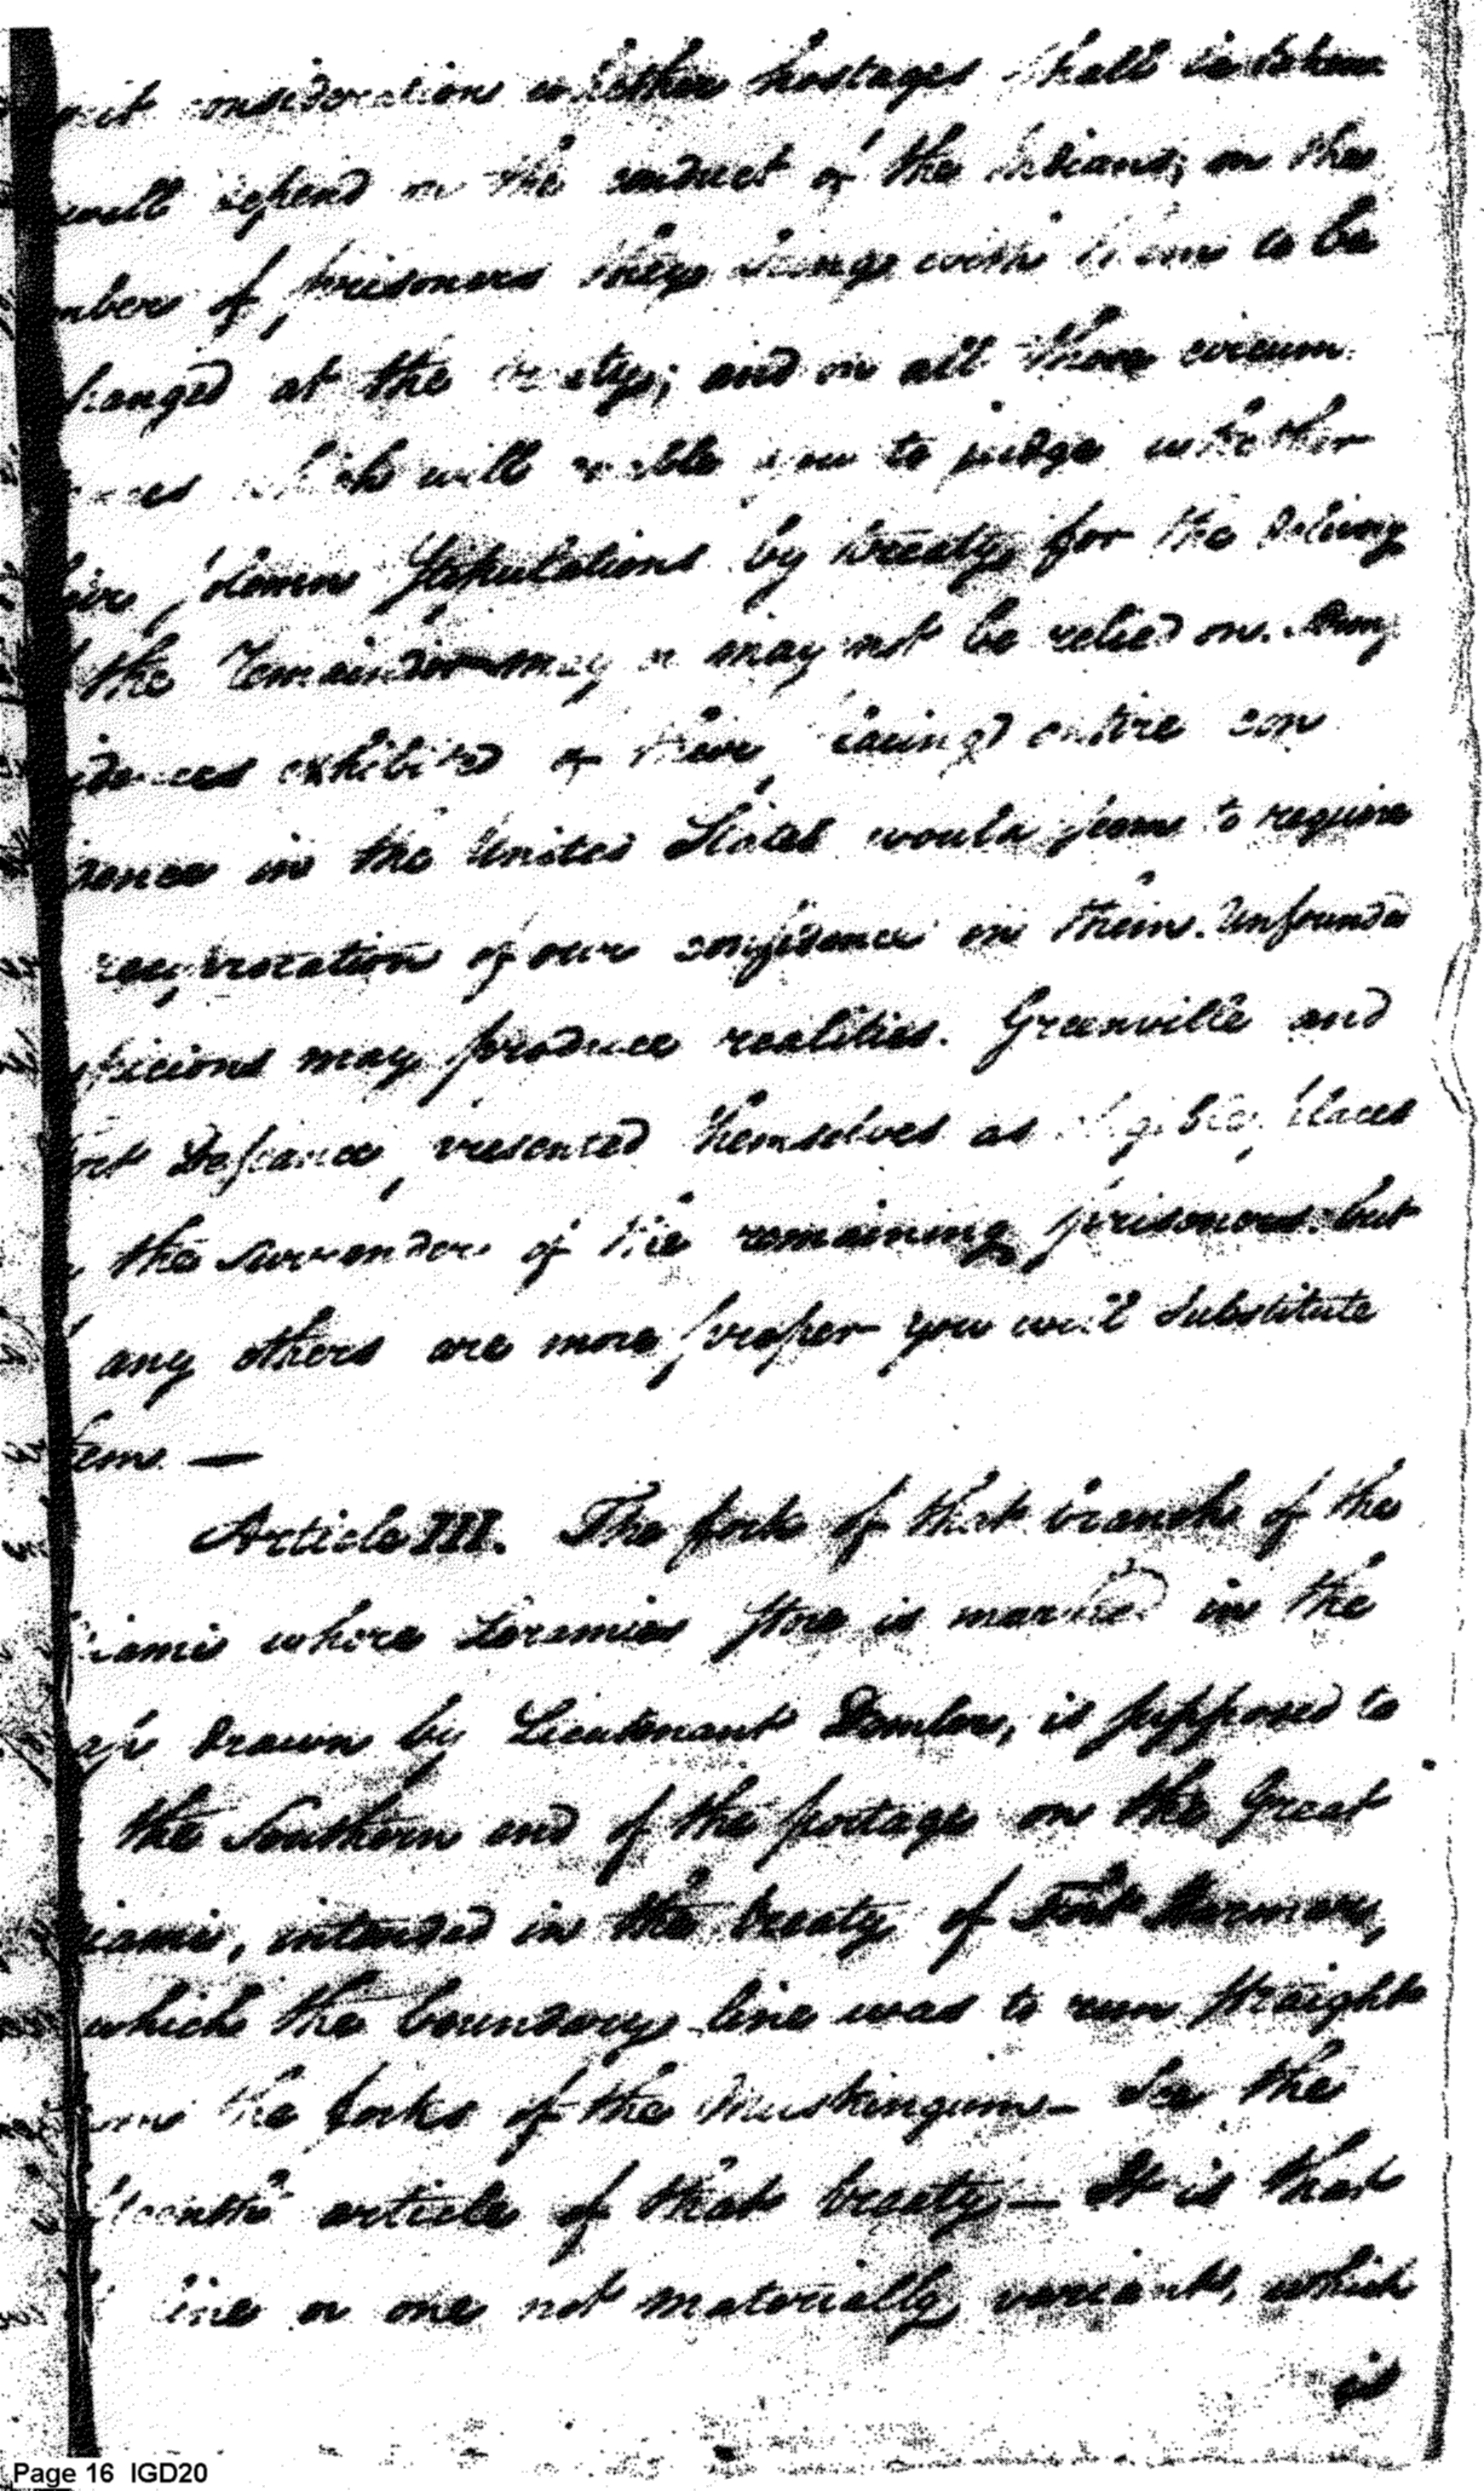 consideration whether hostages shall be taken
will depend on the conduct of the Indians; on the
mber of prisoners they bring with them to be
hanged at the treaty; and on all those circum
which will enable you to judge whether
solemn Stipulations by treaty for the delivery
the remainder may or may not be relied on. Many
exhibited of their placing entire con
dence in the United States would seem to require
reciprocation of our confidence in them. Unfounded
spicions may produce realities. Greenville and
ort Defiance, presented themselves as eligible places
the surrender of the remaining prisoners. but
any others are more proper you will substitute
hem. —
Article III. The fork of that branch of the
iami where Loramies store is marked in the
ap drawn by Lieutenant Demler, is supposed to
the Southern end of the portage on the Great
iami, intended in the treaty of Fort Harmar,
which the boundary line was to run straight
the forks of the Muskingum — See the
article of that treaty — It is that
line or one not materially variant, which
is
Page 16 IGD20